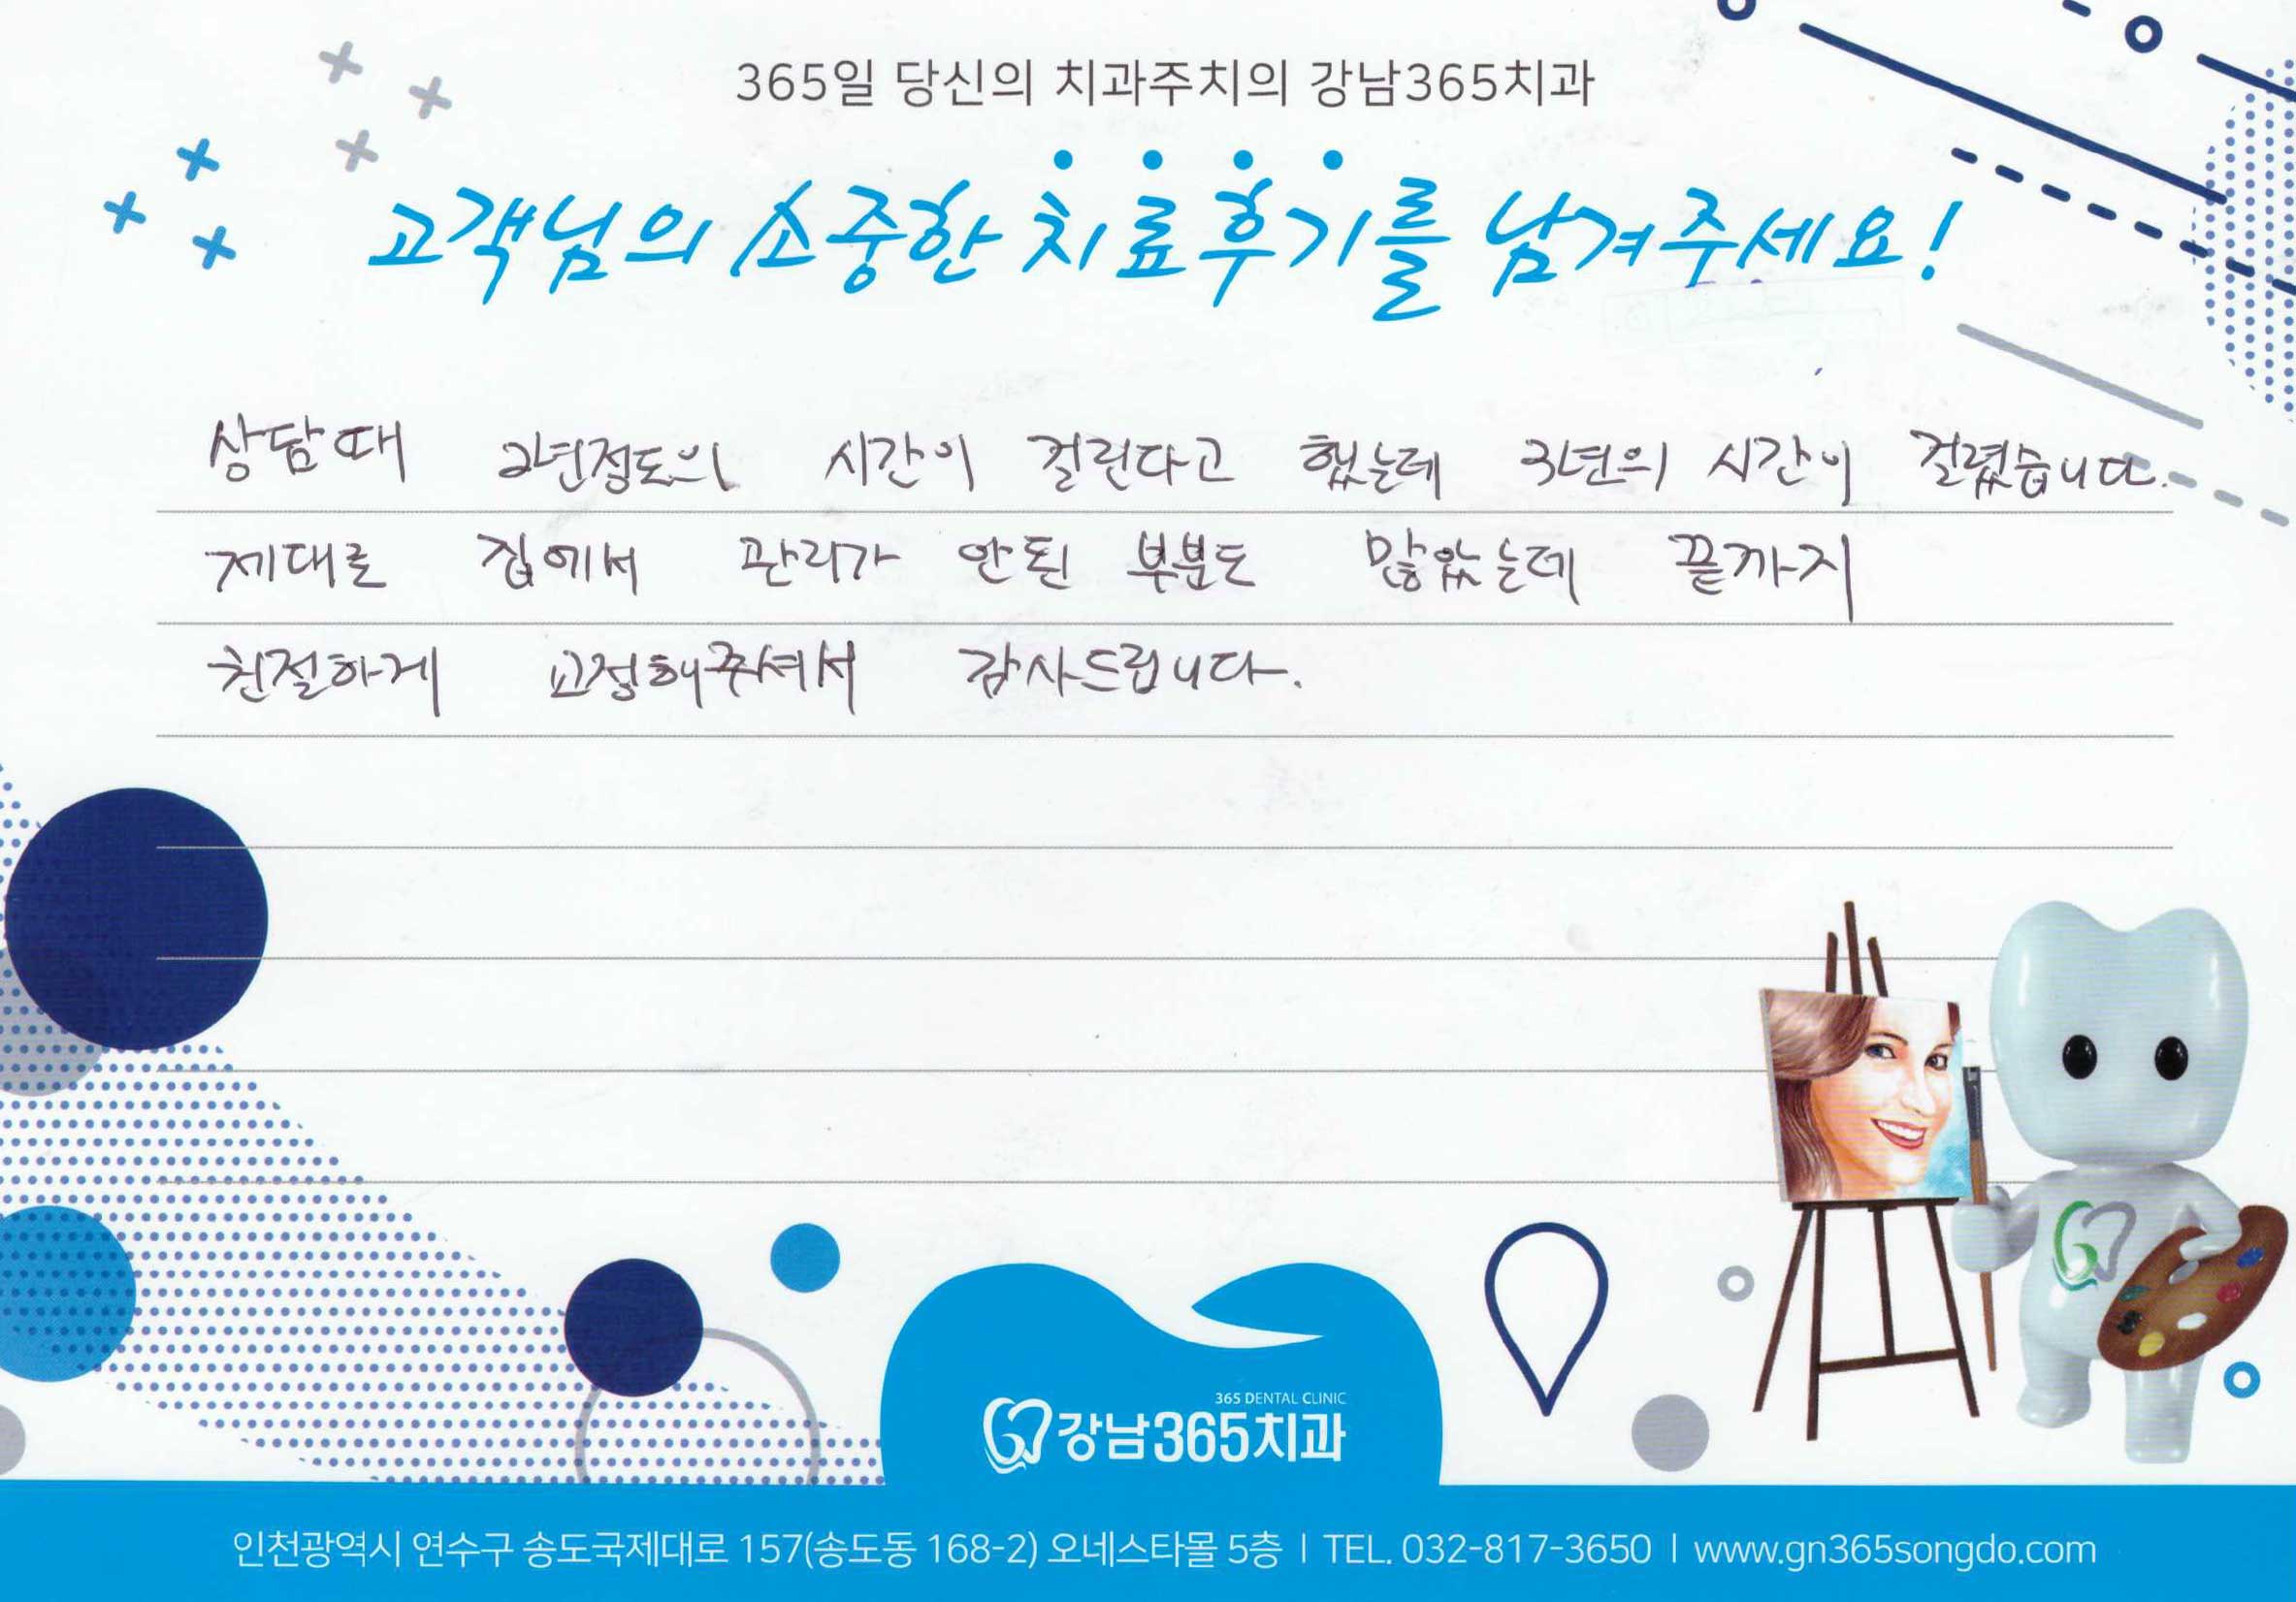 365일 당신의 치과주치의 강남365치과
고객님의 소중한 치료후기를 남겨주세요!
상담때 2년정도의 시간이 걸린다고 했는데 3년의 시간이 걸렸습니다.
제대로 집에서 관리가 안된 부분도 많았는데 끝까지
친절하게 교정해주셔서 감사드립니다.
365 DENTAL CLINIC
강남365치과
인천광역시 연수구 송도국제대로 157(송도동 168-2) 오네스타몰 5층 | TEL. 032-817-3650 | www.gn365songdo.com